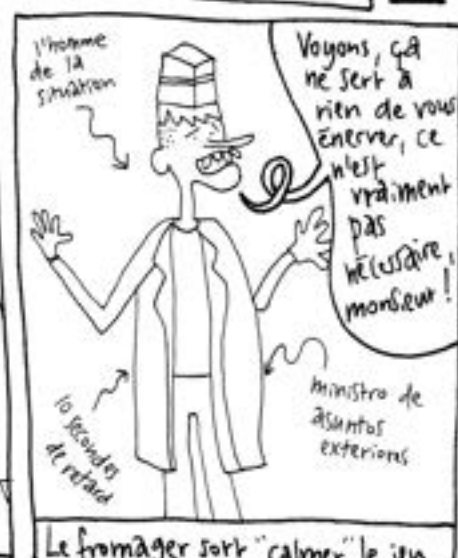 l'homme
de la
situation
Voyons, ça
ne sert à
rien de vous
énerver, ce
n'est
vraiment
pas
nécessaire,
monsieur !
10 secondes
de retard
ministro de
asuntos
exteriores
Le fromager sort "calmer" le jeu